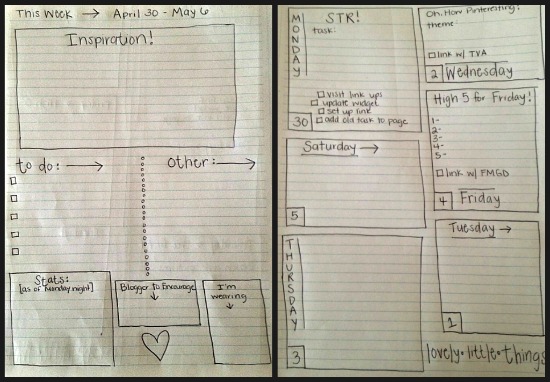 This Week → April 30 - May 6
Inspiration!
to do: →
other: →
Stats:
[as of Sunday night]
Blogger to Encourage
↓
I'm
wearing
↓
MONDAY
STR!
task:
visit link ups
update widget
set up link
add old task to page
30
Oh, How Pinteresting!
theme:
link w/ TVA
2 Wednesday
High 5 for Friday!
1-
2-
3-
4-
5-
link w/ FMGD
4 Friday
Saturday →
5
Tuesday →
1
THURSDAY
3
lovely•little•things